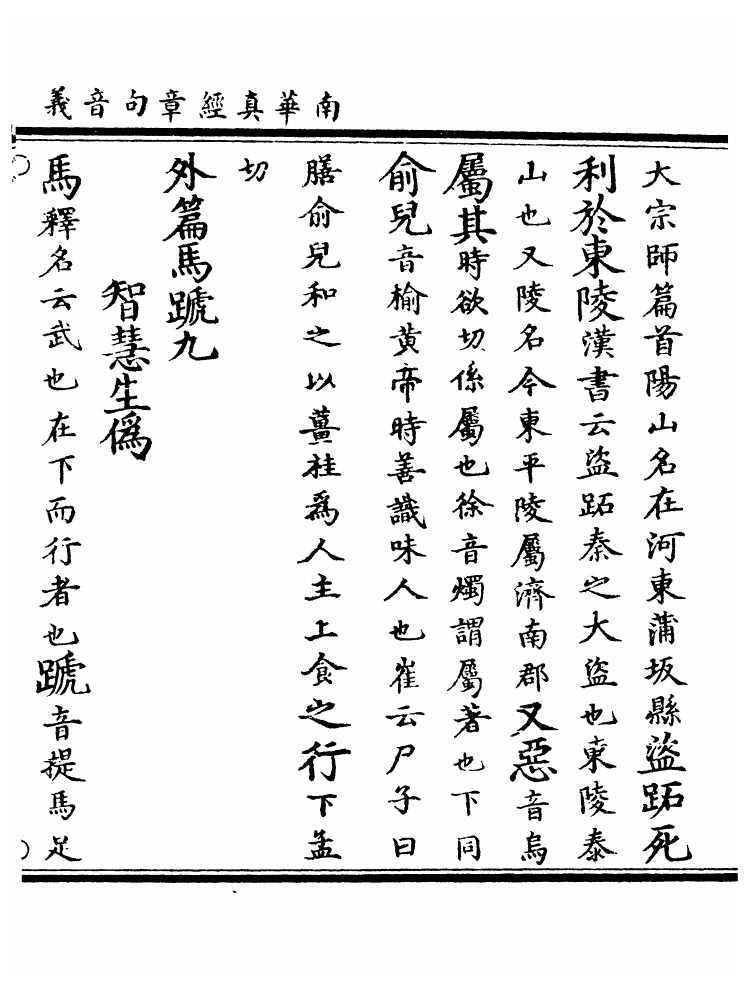 南華真經章句音義
大宗師篇首陽山名在河東蒲坂縣盜跖死
利於東陵漢書云盜跖秦之大盜也東陵泰
山也又陵名今東平陵屬濟南郡又惡音烏
屬其時欲切係屬也徐音燭謂屬著也下同
俞兒音榆黃帝時善識味人也崔云尸子曰
膳俞兒和之以薑桂爲人主上食之行下孟
切
外篇馬蹏九
智慧生僞
馬釋名云武也在下而行者也蹏音提馬足